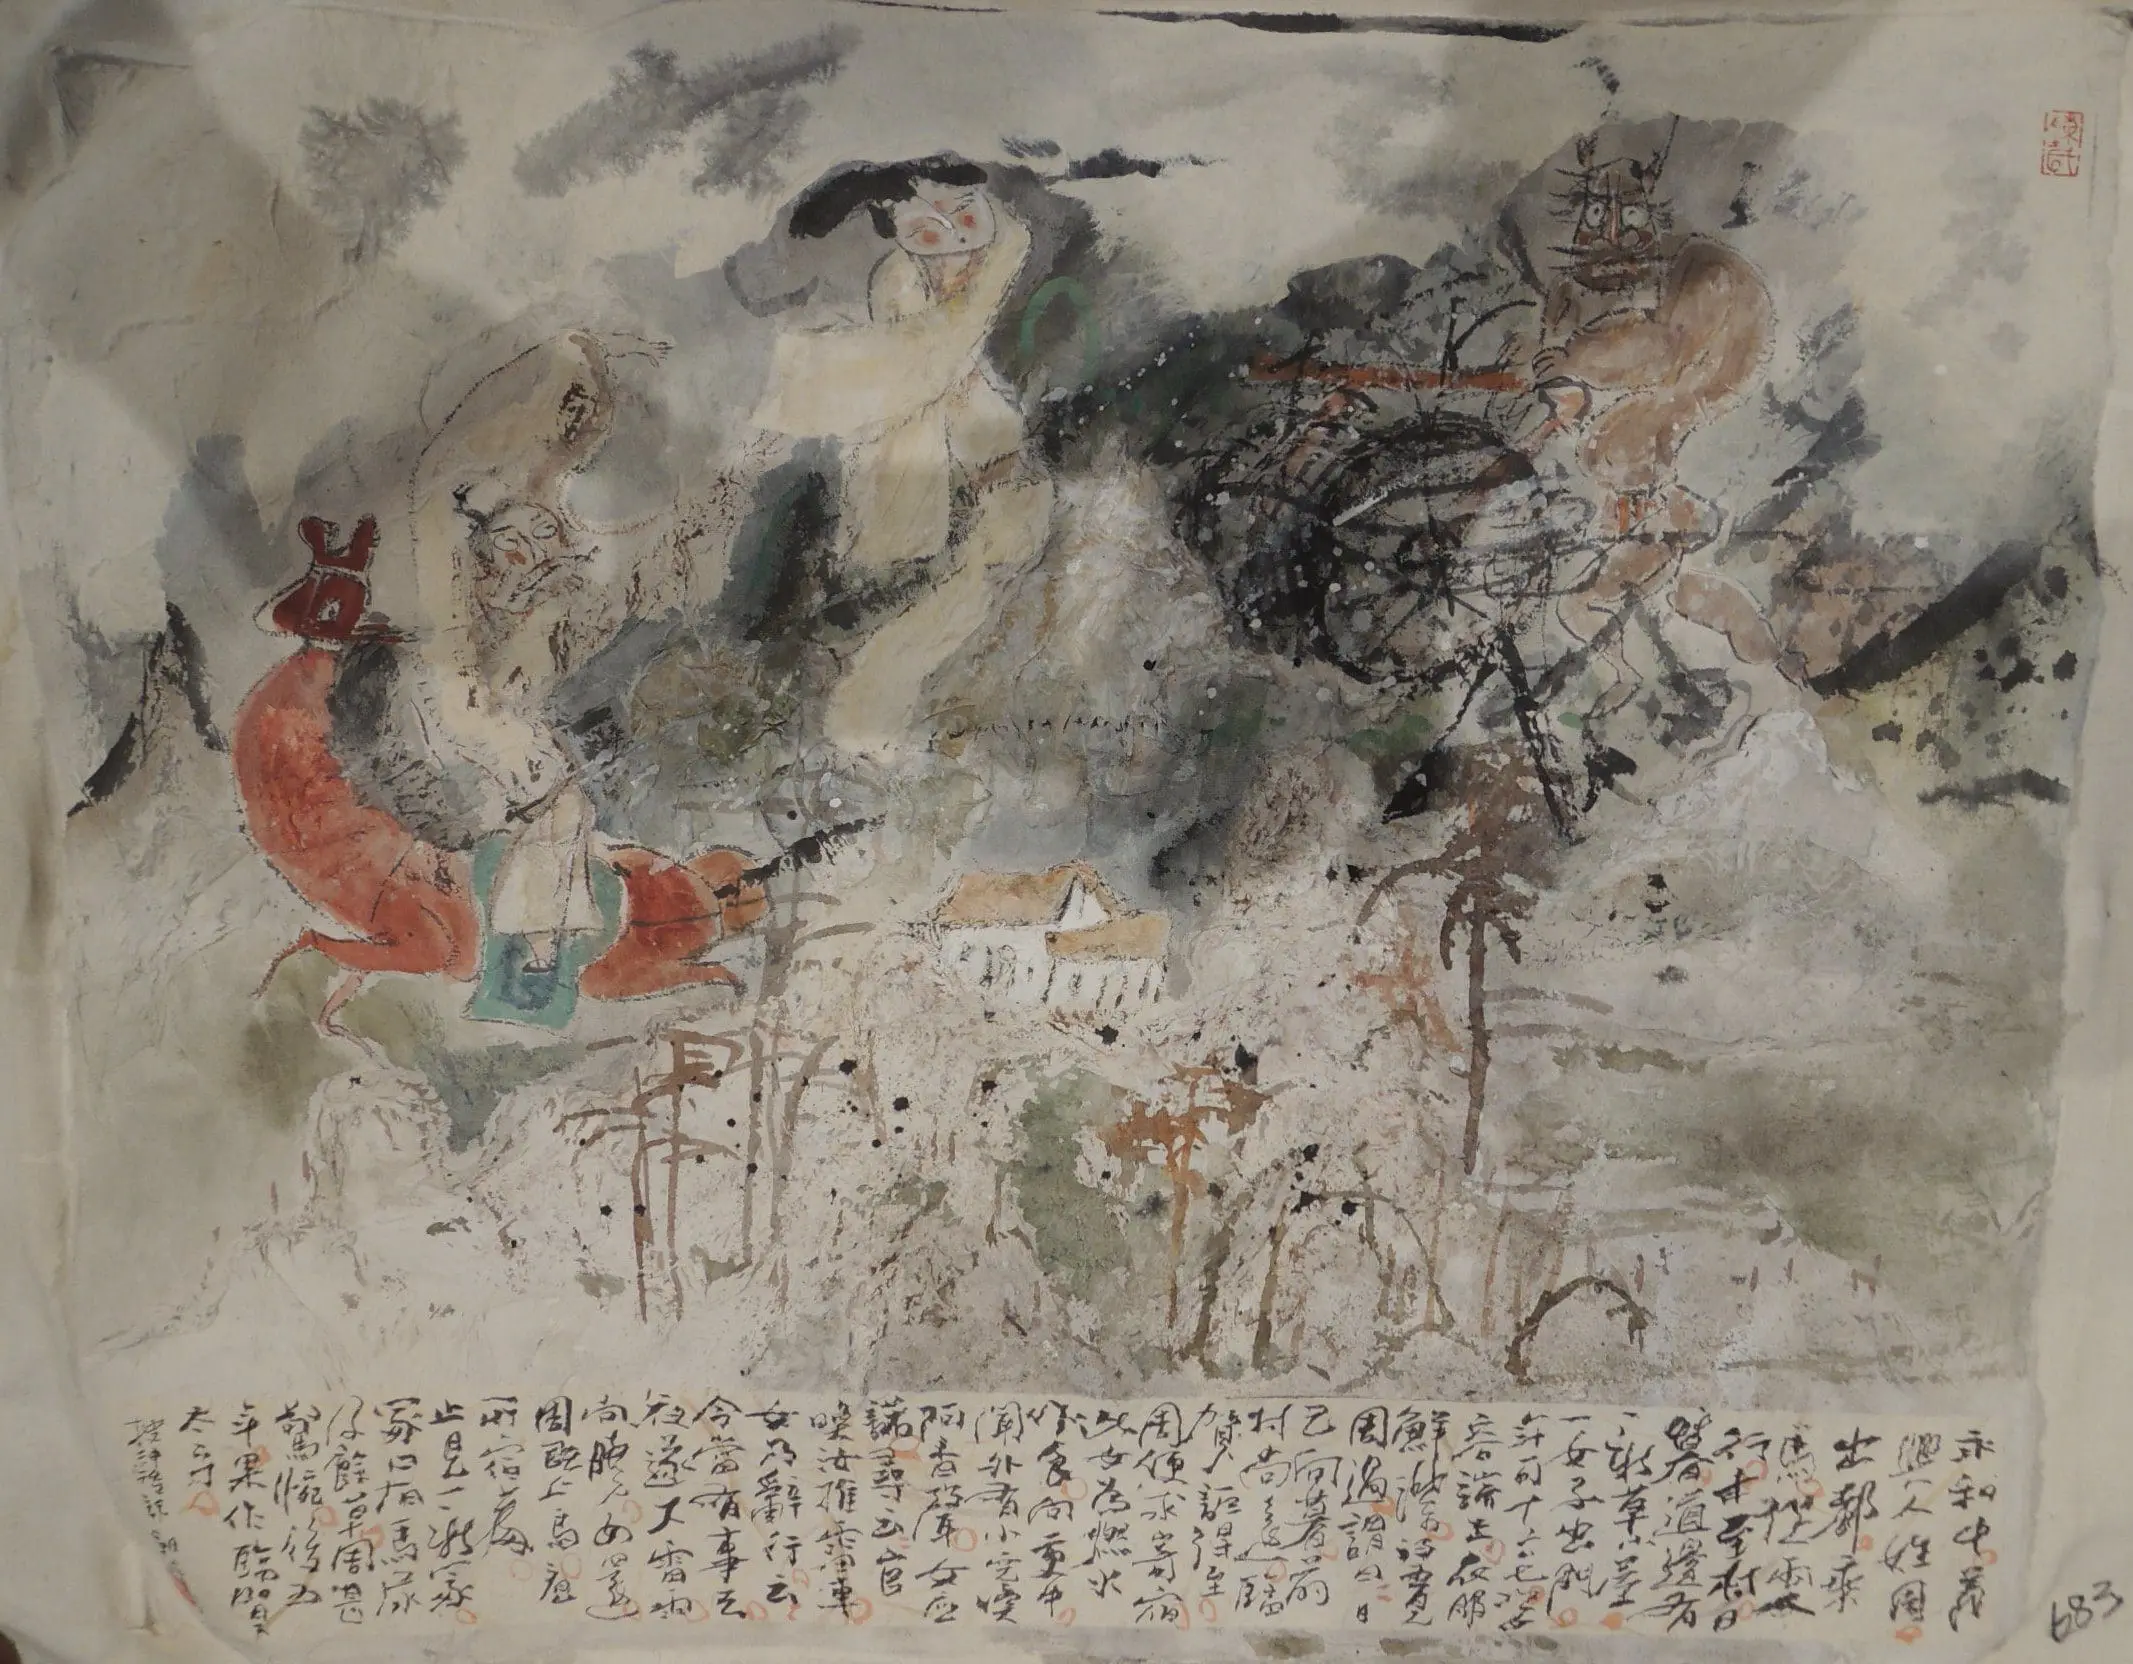 永和中義
興人姓周
出都乘
馬從兩人
行未至村日
暮道邊有
一新草小屋
一女子出門
年可十六七姿
容端正衣服
鮮潔望見
周過謂曰日
已向暮前
村尚遠臨
賀詎得至
周便求寄宿
此女為燃火
作食向更中
聞外有小兒喚
阿香聲女应
諾尋云官
喚汝推雷車
女乃辭行云
今當有事去
夜遂大雷雨
向曉女還
周既上馬看
所宿處
止見一新冢
冢口有馬尿
及餘草周甚
驚惋後五
年果作臨賀
太守
683